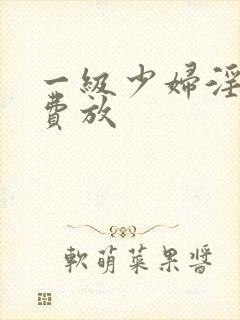 一級少婦淫
費放
軟萌菜果醬